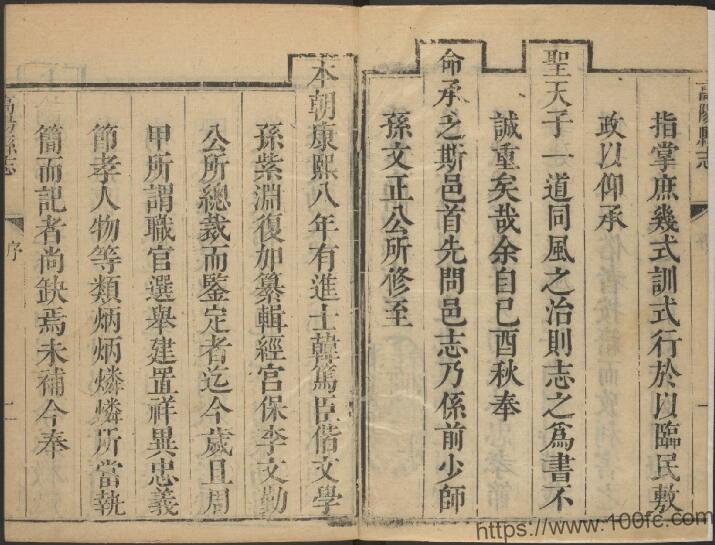 高陽縣志
指掌庶幾式訓式行於以臨民敷
政以仰承
聖天子一道同風之治則志之爲書不
誠重矣哉余自己酉秋奉
命承之斯邑首先問邑志乃係前少師
孫文正公所修至
本朝康熙八年有進士韓篤臣偕文學
孫紫淵復加纂輯經宮保李文勤
公所總裁而鑒定者迄今歲且周
甲所謂職官選舉建置祥異忠義
節孝人物等類炳炳燐燐所當執
簡而記者尚缺焉未補今奉
高陽縣志
序
https://www.100fc.com